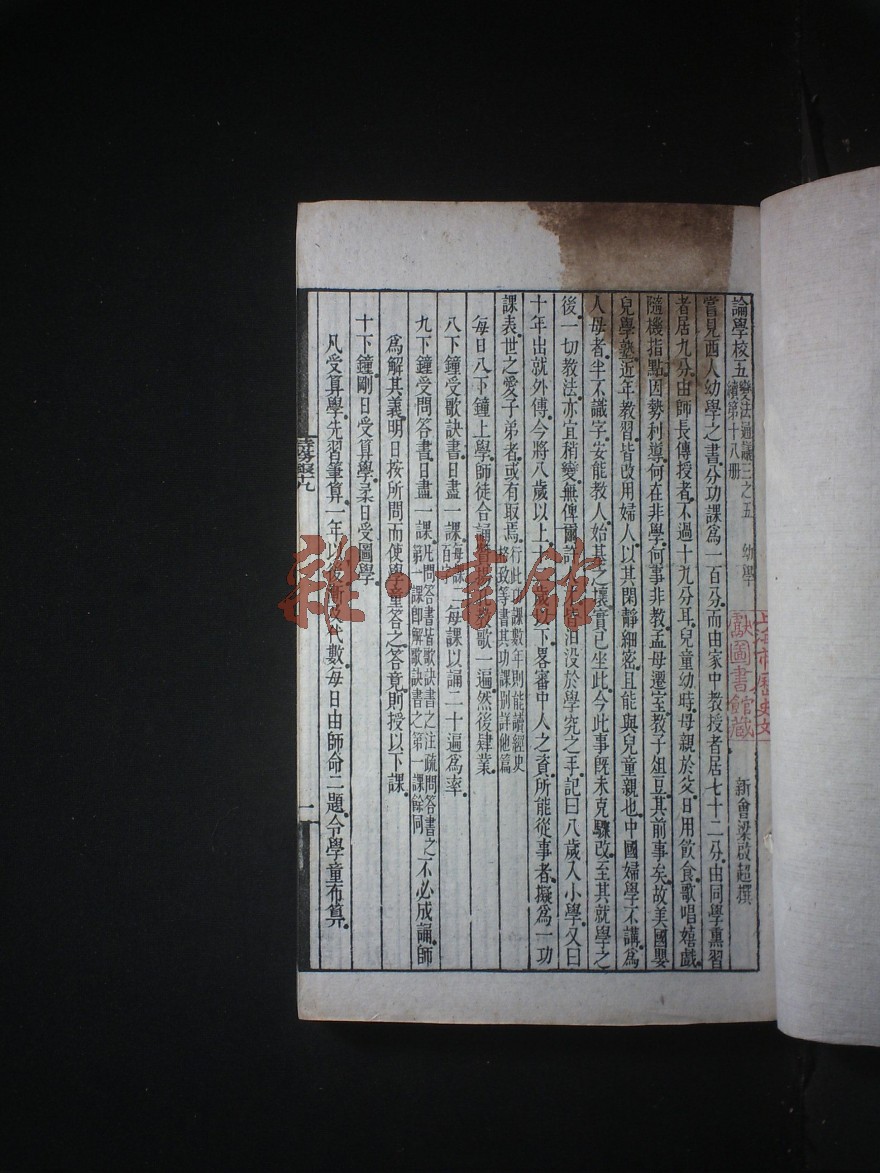 論學校五 變法通議三之五 幼學
續第十八册
新會梁啟超撰
嘗見西人幼學之書分功課爲一百分而由家中教授者居七十二分由同學熏習
者居九分由師長傳授者不過十九分耳兒童幼時母親於父日用飲食歌唱嬉戲
隨機指點因勢利導何在非學何事非教孟母遷室教子俎豆其前事矣故美國嬰
兒學塾近年教習皆改用婦人以其閑靜細密且能與兒童親也中國婦學不講爲
人母者半不識字安能教人始基之壞實已坐此今此事旣未克驟改至其就學之
後一切教法亦宜稍變無俾爾許 皆汨没於學究之手記曰八歲入小學又曰
十年出就外傅今將八歲以上 歲以下畧審中人之資所能從事者擬爲一功
課表世之愛子弟者或有取焉 行此功課數年則能讀經史
格致等書其功課別詳他篇
每日八下鐘上學師徒合誦 揚孔教歌一遍然後肄業
八下鐘受歌訣書日盡一課 每課
百字 每課以誦二十遍爲率
九下鐘受問答書日盡一課 凡問答書皆歌訣書之注疏問答書之
第一課卽解歌訣書之第一課餘同 不必成誦師
爲解其義明日按所問而使學童答之答竟則授以下課
十下鐘剛日受算學柔日受圖學
凡受算學先習筆算一年以後 及代數每日由師命二題令學童布算
時務報十九
一
上海市歷史文
獻圖書館藏
雜·書館